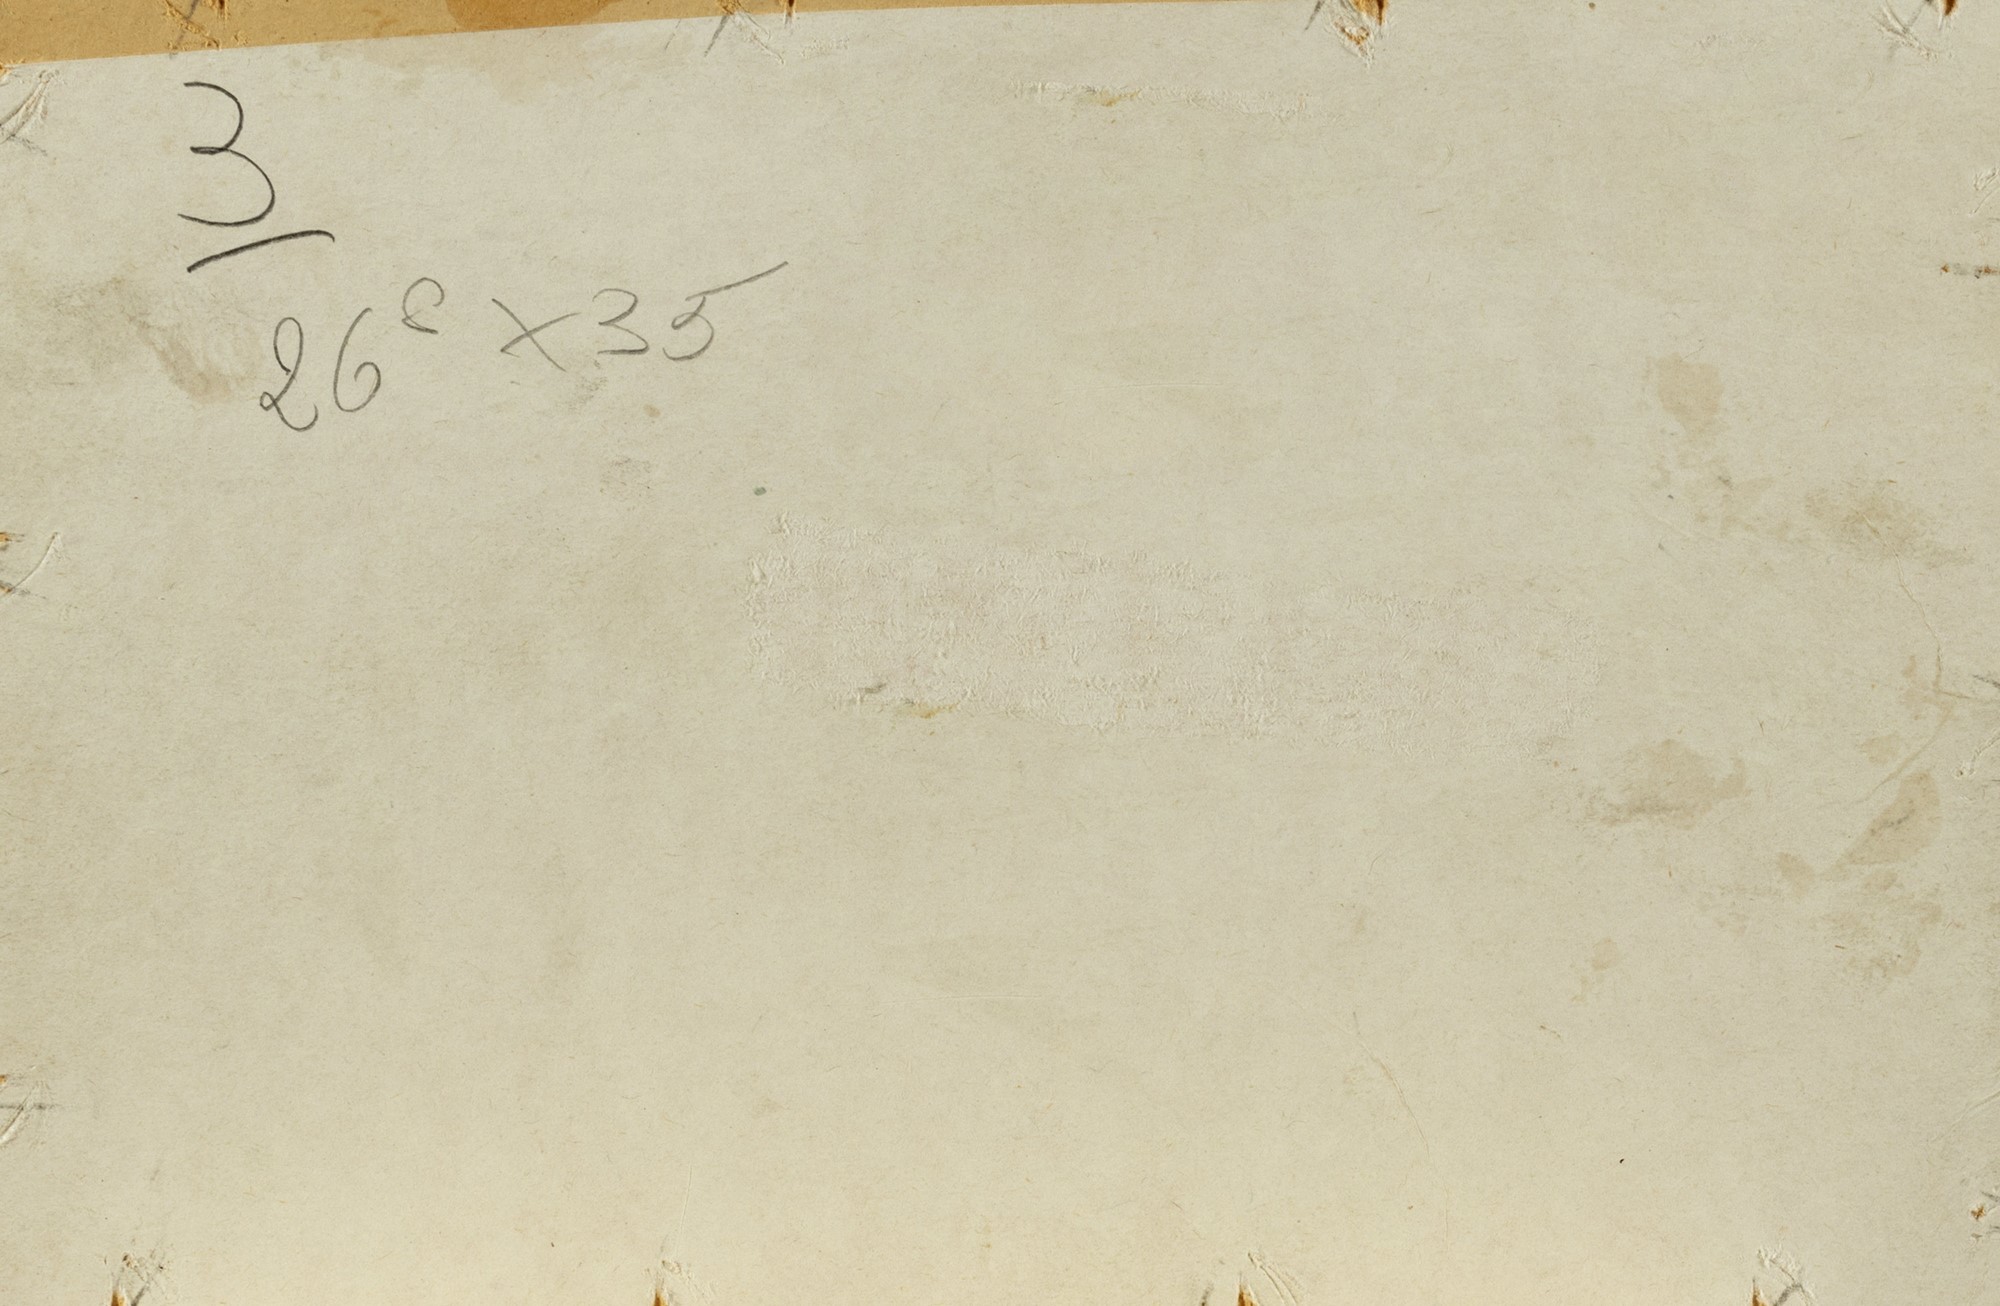 3
26⁸ × 35